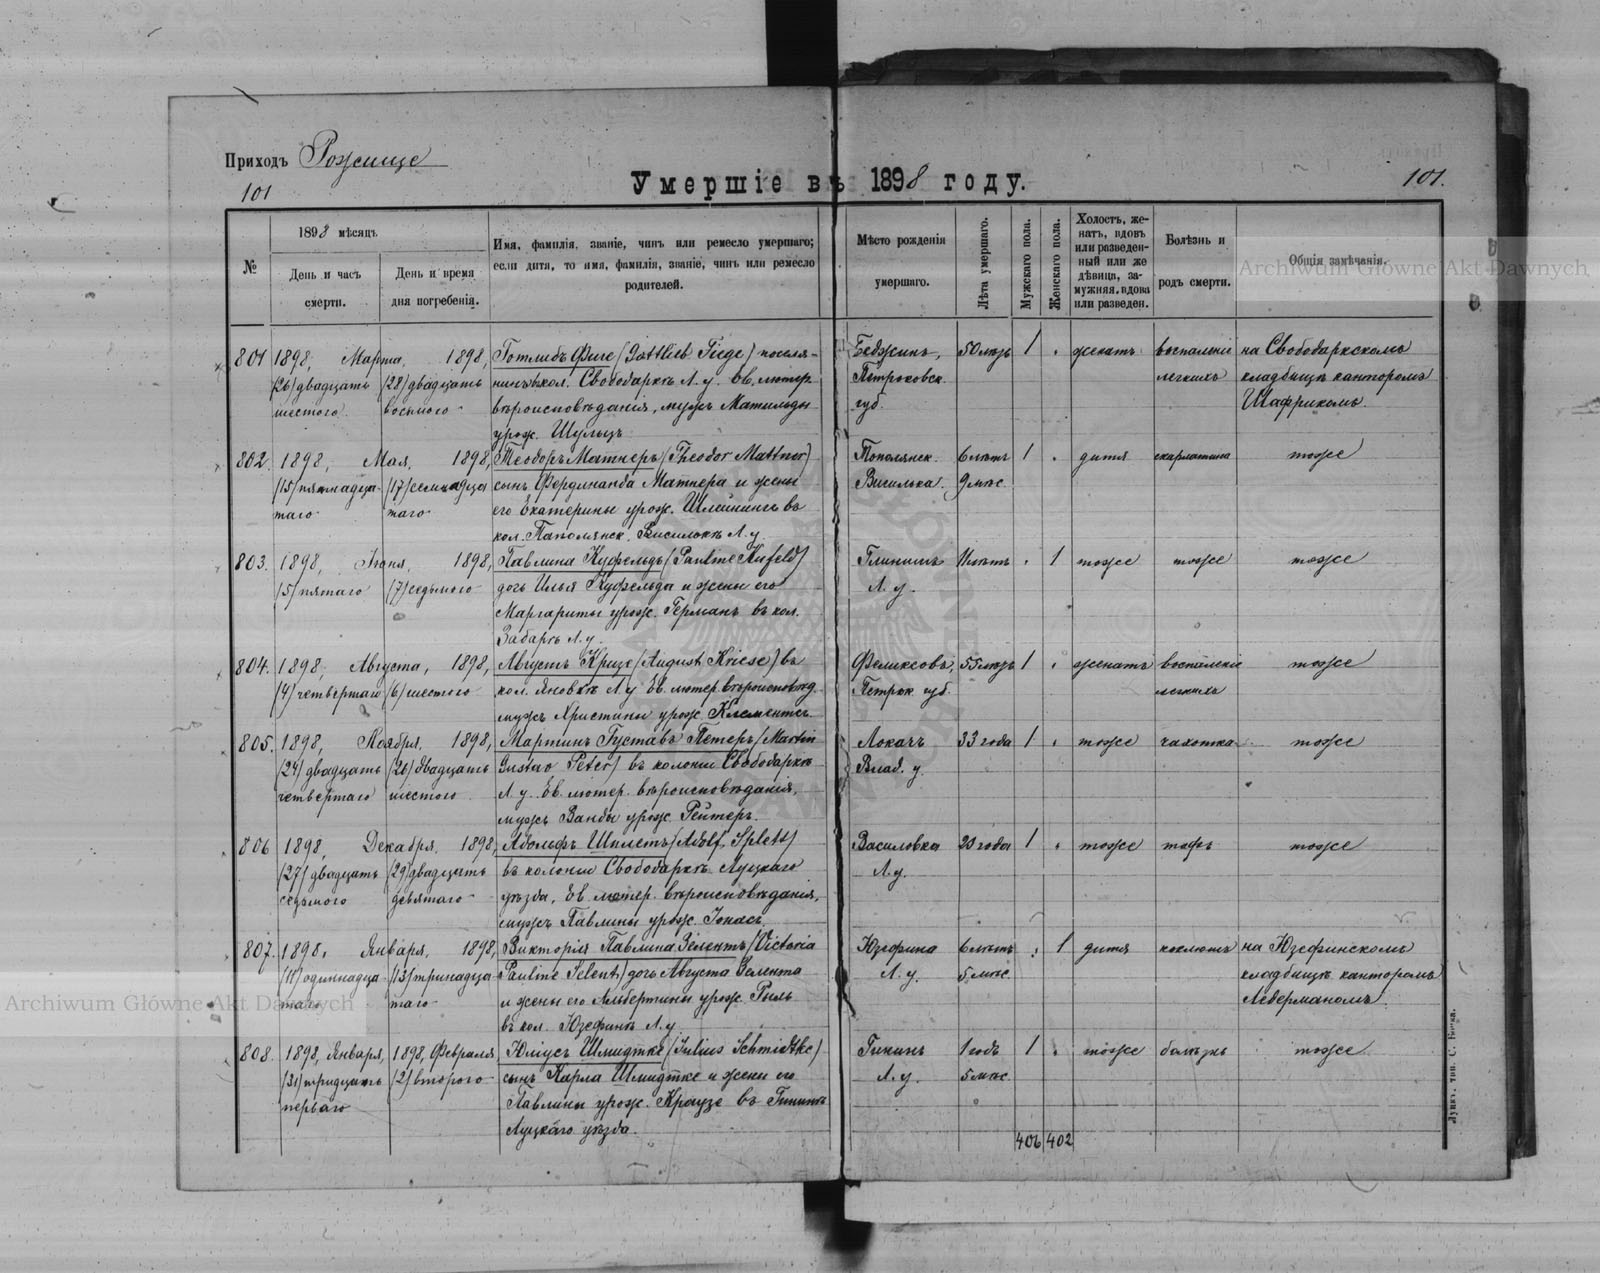 Приходъ Рожище
101
Умершіе въ 1898 году.
101.
№
1898 мѣсяцъ
День и часъ смерти.
День и время дня погребенія.
Имя, фамилія, званіе, чинъ или ремесло умершаго;
если дитя, то имя, фамилія, званіе, чинъ или ремесло
родителей.
Мѣсто рожденія
умершаго.
Лѣта умершаго.
Мужскаго пола.
Женскаго пола.
Холостъ, же-
натъ, вдовъ
или разведен-
ный или же
дѣвица, за-
мужняя, вдова
или разведен.
Болѣзнь и
родъ смерти.
Общія замѣчанія.
Archiwum Główne Akt Dawnych
801 1898, Марта, 1898, Готлибъ Фиге (Gottlieb Fiege) поселя- Бедзинъ, 50 лѣтъ 1 женатъ воспаленіе на Свободаркскомъ
(26) двадцать (28) двадцать нинъ кол. Свободаркъ Л. у. Ев. лютер. Петроковск. легкихъ кладбищѣ канторомъ
шестого восьмого вѣроисповѣданія, мужъ Матильды губ. Шафрикомъ.
урож. Шульцъ
802. 1898, Мая, 1898, Теодоръ Матнеръ (Theodor Mattner) Тополянск. 6 лѣтъ 1 дитя скарлатина тоже
(15) пятнадца (17) семнадца сынъ Фердинанда Матнера и жены Василька. 9 мѣс.
таго таго его Екатерины урож. Шлейнингъ въ
кол. Л. у.
803. 1898, Іюня, 1898, Павлина Куфельдъ (Pauline Kufeld) Глинищъ 11 лѣтъ 1 тоже тоже тоже
(5) пятаго (7) седьмого дочь Ильи Куфельда и жены его Л. у.
Маргариты урож. Германъ въ кол.
Забара Л. у.
804. 1898, Августа, 1898, Августъ Кризе (August Kriese) въ Феликсовъ, 55 лѣтъ 1 женатъ воспаленіе тоже
(4) четвертаго (6) шестого кол. Яновкѣ Л. у. Ев. лютер. вѣроисповѣд. Петрок. губ. легкихъ
мужъ Христины урож. Клементсъ.
805. 1898, Ноября, 1898, Мартинъ Густавъ Петеръ (Martin Локачъ 33 года 1 тоже чахотка тоже
(24) двадцать (26) двадцать Gustav Peter) въ колоніи Свободаркѣ Влад. у.
четвертаго шестого Л. у. Ев. лютер. вѣроисповѣданія,
мужъ Ванды урож. Рейтеръ.
806 1898, Декабря, 1898, Адольфъ Шплетъ (Adolf Splett) Василовка 23 года 1 тоже тифъ тоже
(27) двадцать (29) двадцать въ колоніи Свободаркъ Луцкаго Л. у.
седьмого девятаго уѣзда, Ев. лютер. вѣроисповѣданія,
мужъ Павлины урож. Іонасъ
807. 1898, Января, 1898, Викторія Павлина Зелентъ (Victoria Юзефина 6 лѣтъ 1 дитя коклюшъ на Юзефинскомъ
(11) одиннадца (13) тринадца Pauline Selent) дочь Августа Зелента Л. у. 5 мѣс. кладбищѣ канторомъ
таго таго и жены его Альбертины урож. Рыль Леверманомъ.
въ кол. Юзефинъ Л. у.
Archiwum Główne Akt Dawnych
808. 1898, Января, 1898, Февраля Юліусъ Шмидтке (Julius Schmidtke) Гининъ 1 годъ 1 тоже болѣзнь тоже
(31) тридцать (2) второго сынъ Карла Шмидтке и жены его Л. у. 5 мѣс.
перваго Павлины урож. Краузе въ
Луцкаго уѣзда.
406 402
Луцкъ, тип. С.